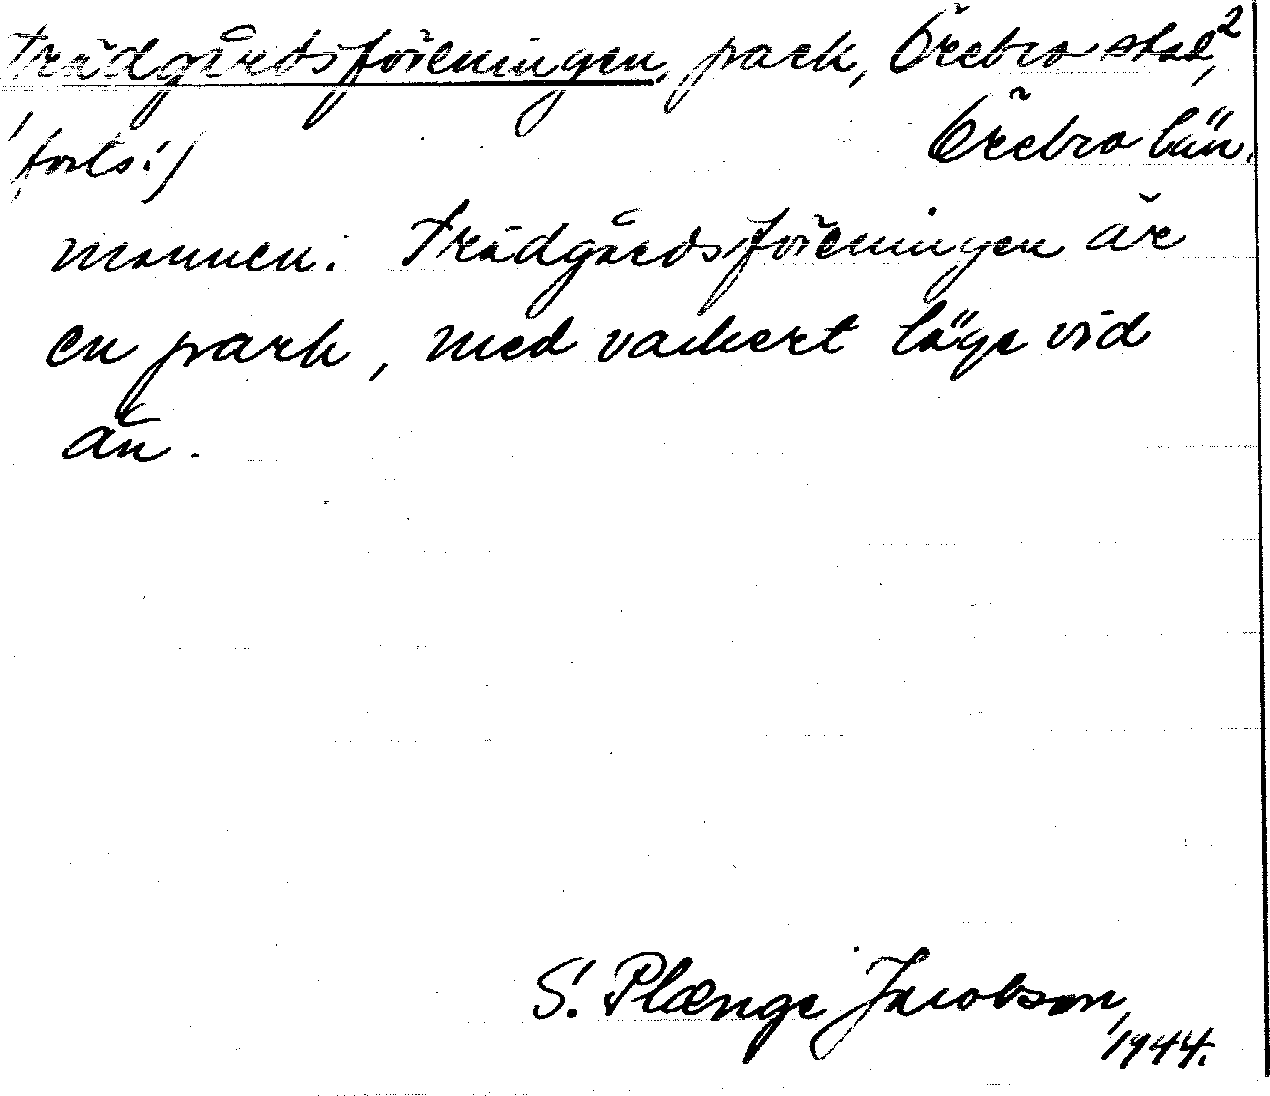 Trädgårdsföreningen, park, Örebro stad, 2
(forts.) Örebro län.
mannen. Trädgårdsföreningen är
en park, med vackert läge vid
ån.
S. Plænge Jacobson,
1944.